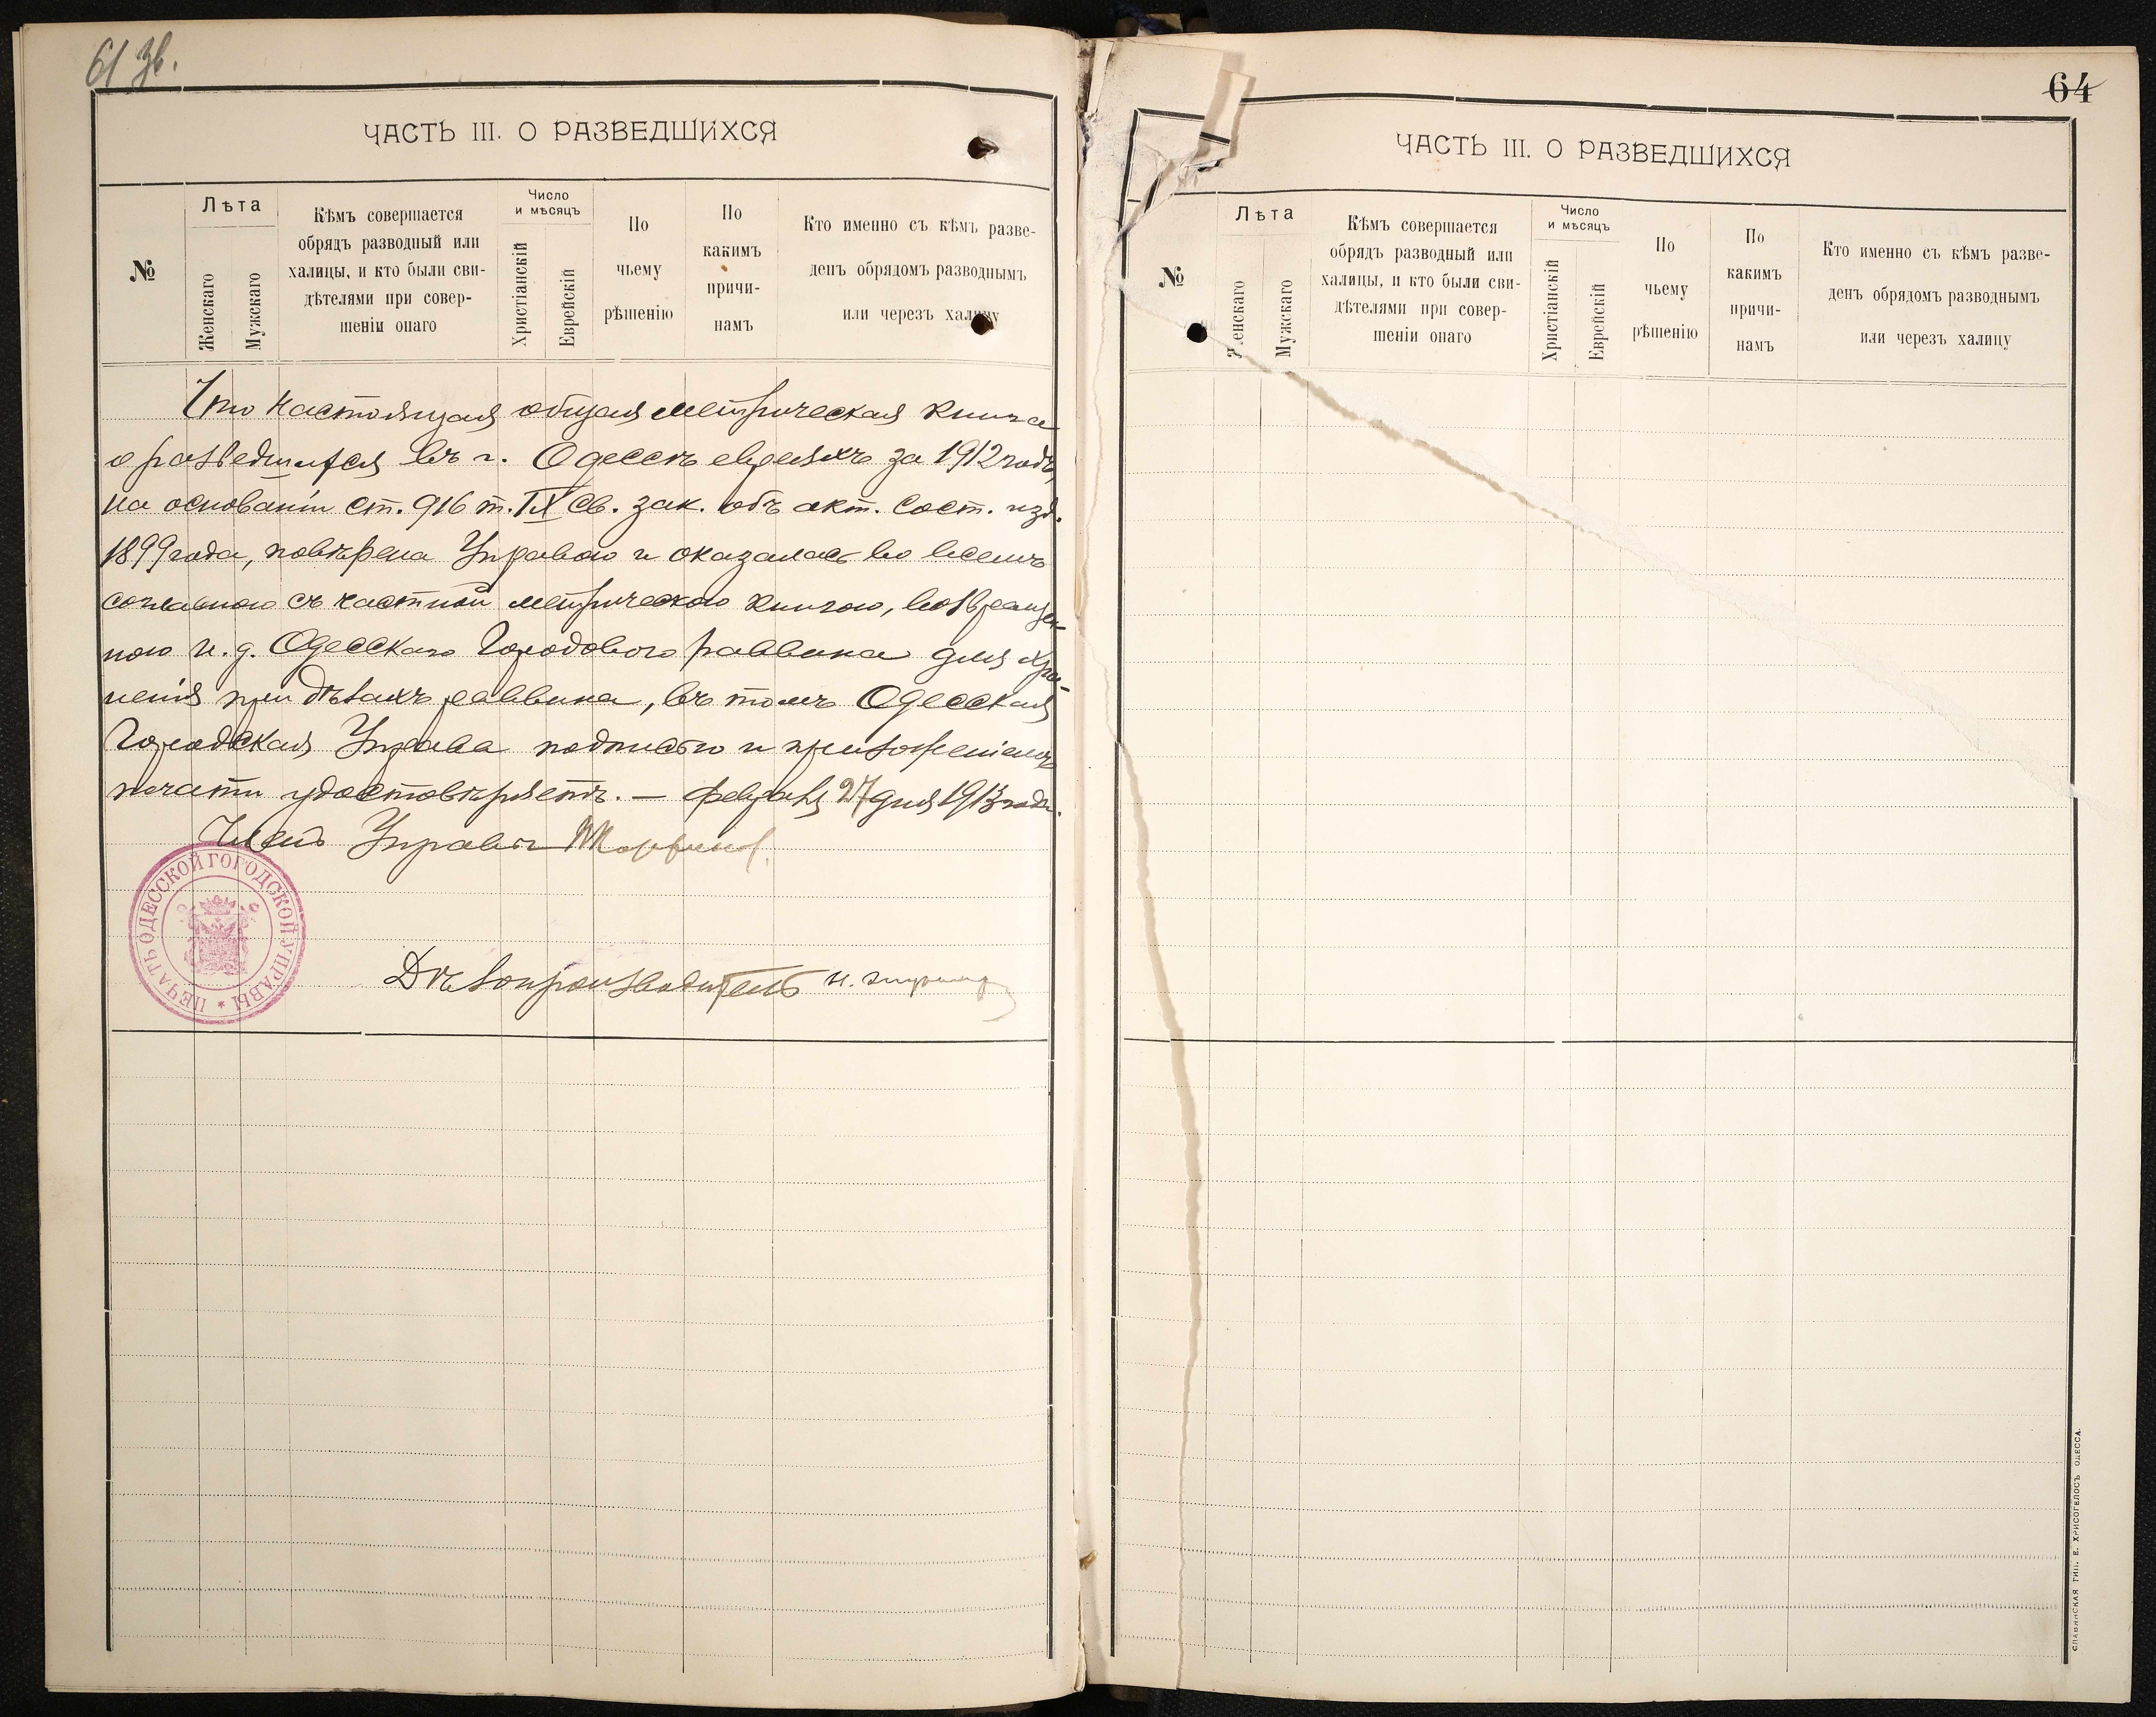 61 зв.
ЧАСТЬ III. О РАЗВЕДШИХСЯ
№
Лѣта
Женскаго
Мужскаго
Кѣмъ совершается
обрядъ разводный или
халицы, и кто были сви-
дѣтелями при совер-
шеніи онаго
Число
и мѣсяцъ
Христіанскій
Еврейскій
По
чьему
рѣшенію
По
какимъ
причи-
намъ
Кто именно съ кѣмъ разве-
денъ обрядомъ разводнымъ
или черезъ халицу
Что настоящая общая метрическая книга
о разведшихся въ г. Одессѣ евреяхъ за 1912 годъ,
на основаніи ст. 916 т. IX св. зак. объ акт. сост. изд.
1899 года, повѣрена Управою и оказалась во всемъ
согласною съ частной метрическою книгою, возвращен-
ною и. д. Одесскаго Городового раввина для хра-
ненія при дѣлахъ раввина, въ томъ Одесская
Городская Управа подписью и приложеніемъ
печати удостовѣряетъ. — февраля 27 дня 1913 года.
Членъ Управы
ПЕЧАТЬ ОДЕССКОЙ ГОРОДСКОЙ УПРАВЫ *
Дѣлопроизводитель
64
ЧАСТЬ III. О РАЗВЕДШИХСЯ
№
Лѣта
Женскаго
Мужскаго
Кѣмъ совершается
обрядъ разводный или
халицы, и кто были сви-
дѣтелями при совер-
шеніи онаго
Число
и мѣсяцъ
Христіанскій
Еврейскій
По
чьему
рѣшенію
По
какимъ
причи-
намъ
Кто именно съ кѣмъ разве-
денъ обрядомъ разводнымъ
или черезъ халицу
СЛАВЯНСКАЯ ТИП. Е. ХРИСОГЕЛОСЪ ОДЕССА.